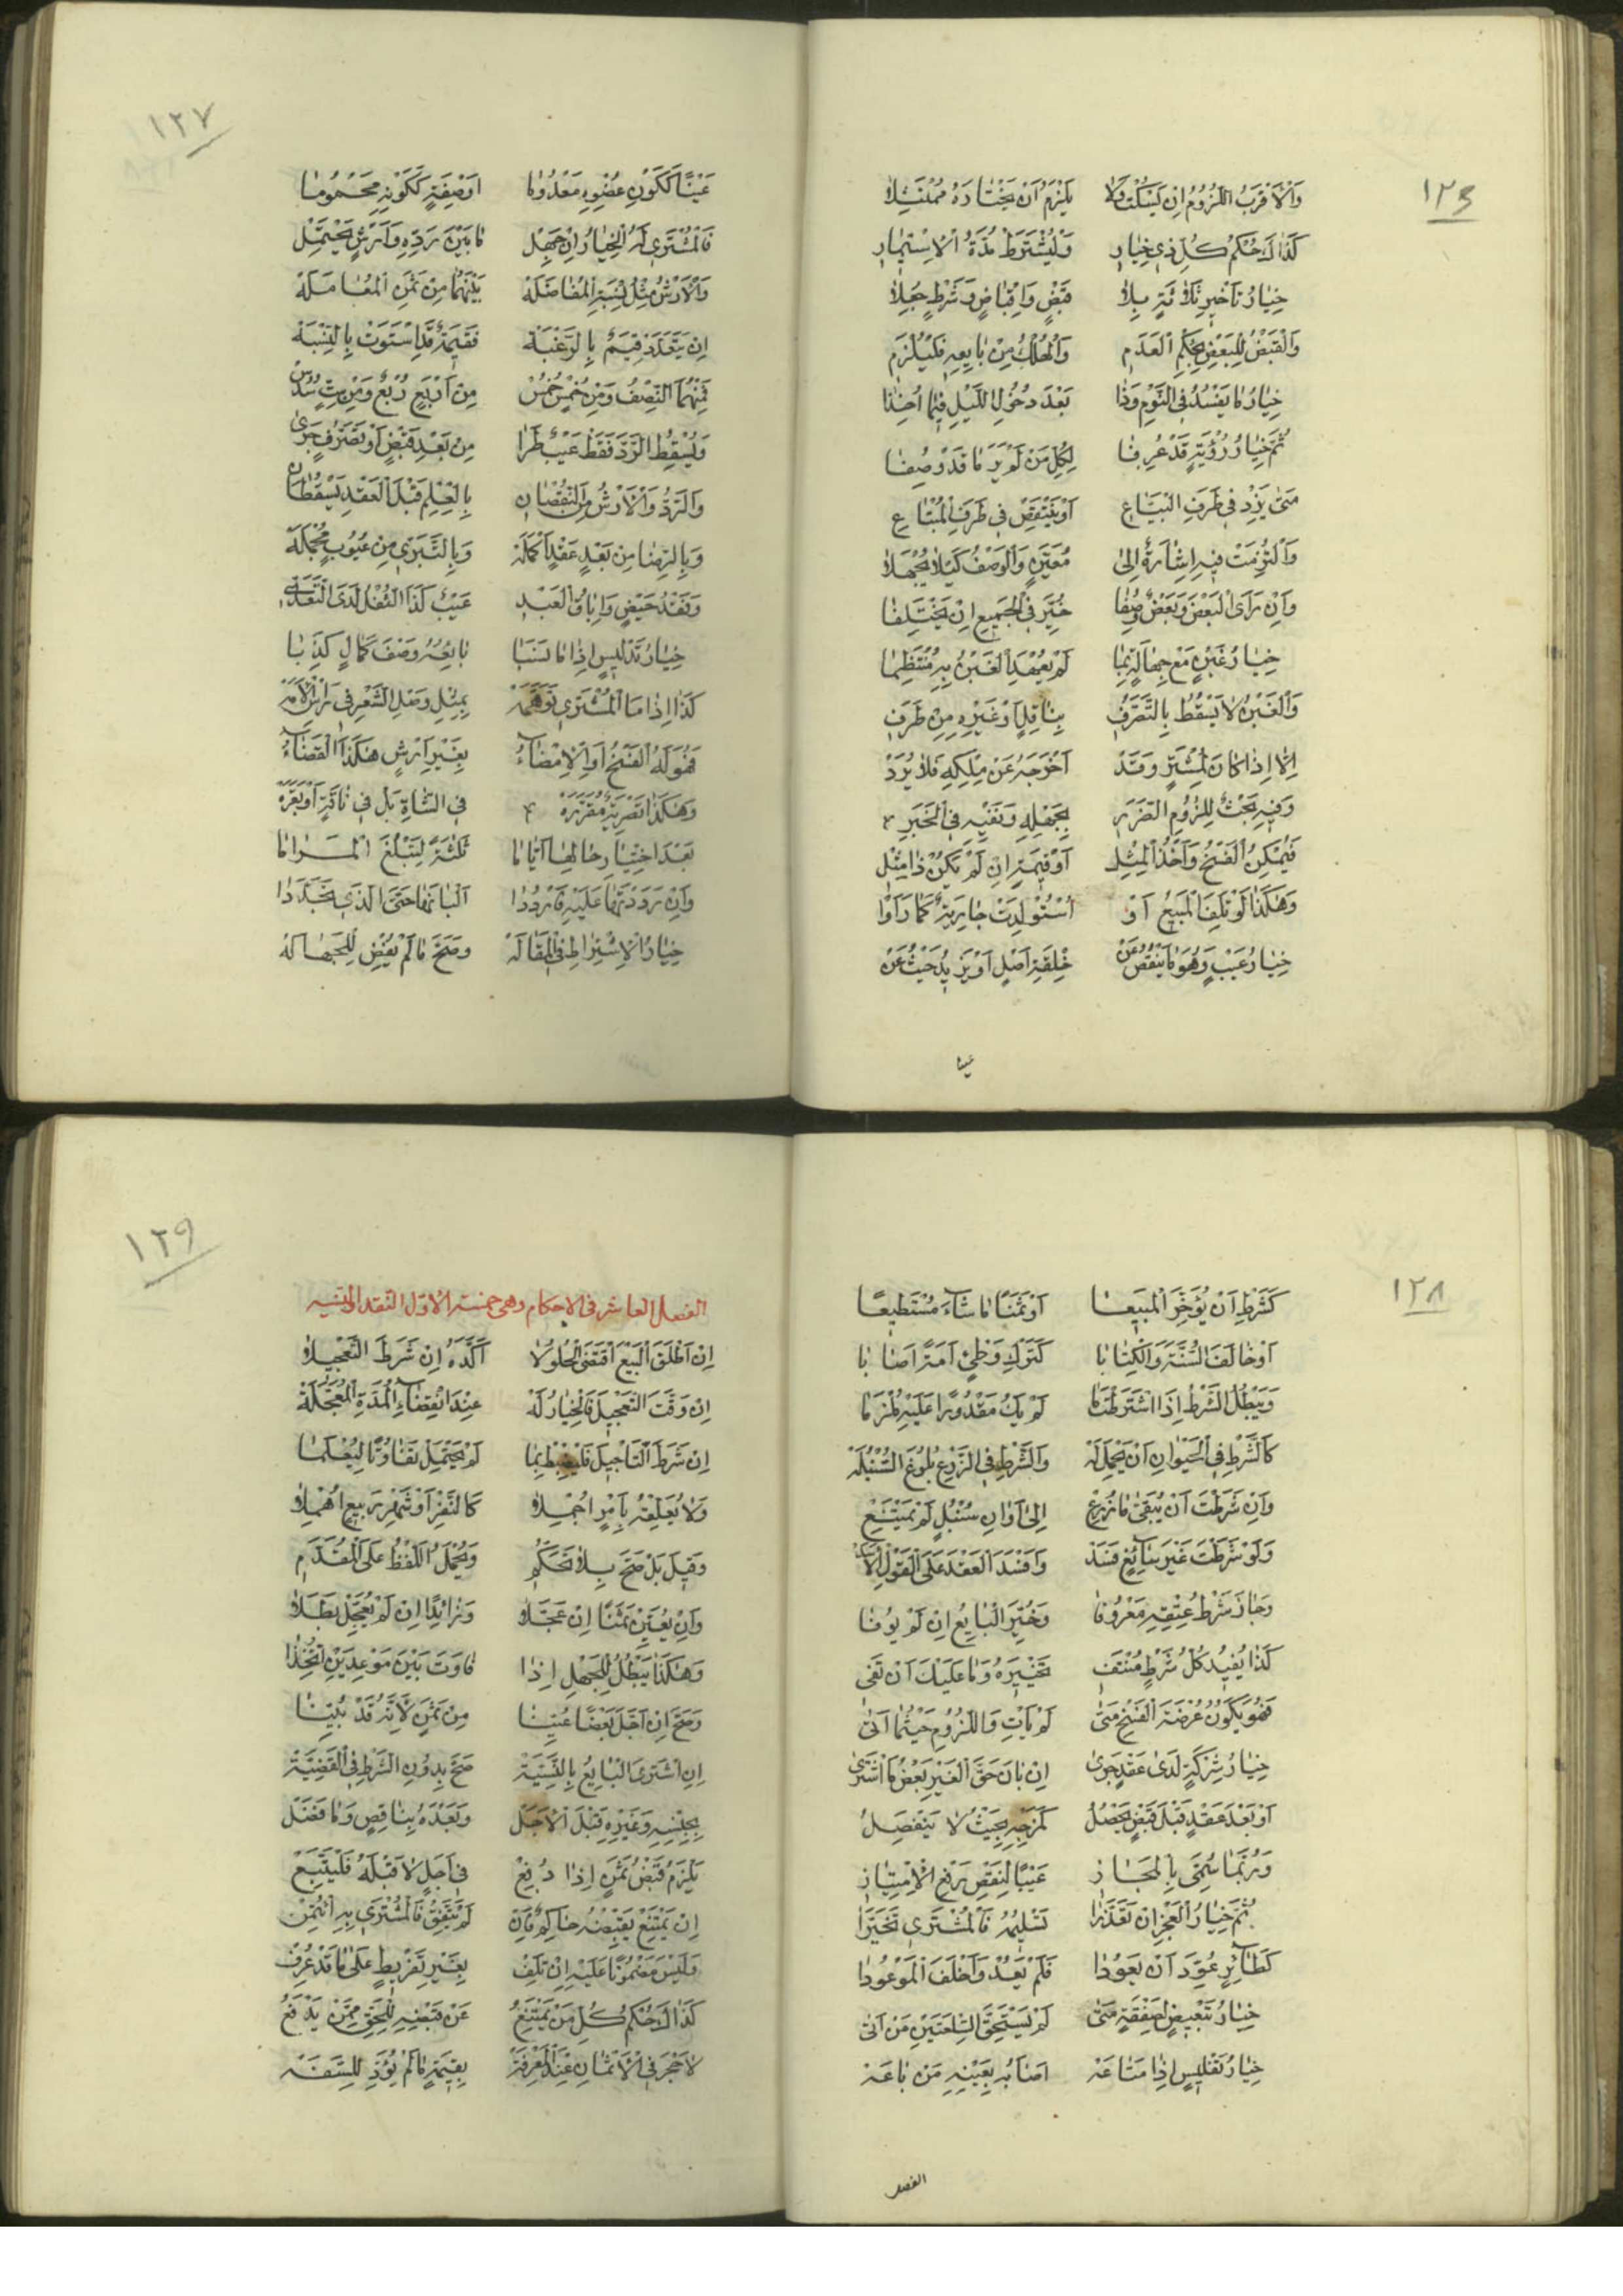 ١٢٦
وَالْأَقْرَبُ اللُّزُومُ إِنْ يَسْكُتْ وَلَا يَلْزَمُ أَنْ يَخْتَارَهُ مُمْتَثِلَا
كَذَاكَ حُكْمُ كُلِّ ذِي خِيَارِ وَلْيُشْتَرَطْ مُدَّةُ الْاِسْتِيمَارِ
خِيَارُ تَأْخِيرِ ثَلَاثَةٍ بِلَا قَبْضٍ وَإِقْبَاضٍ وَشَرْطٍ جُعِلَا
وَالْقَبْضُ لِلْبَعْضِ بِحُكْمِ الْعَدَمِ وَالْهُلْكُ مِنْ بَايِعِهِ فَلْيُلْزَمِ
خِيَارُ مَا يَفْسُدُ فِي الْيَوْمِ وَذَا بَعْدَ دُخُولِ اللَّيْلِ فِيمَا أُخِذَا
ثُمَّ خِيَارُ رُؤْيَةٍ قَدْ عُرِفَا لِكُلِّ مَنْ لَمْ يَرَ مَا قَدْ وُصِفَا
مَتَى يَزِدْ فِي طَرَفِ الْبَيَّاعِ أَوْ يَنْتَقِصْ فِي طَرَفِ الْمُبْتَاعِ
وَالْتُزِمَتْ فِيهِ إِشَارَةٌ إِلَى مُعَيَّنٍ وَالْوَصْفُ كَيْلَا يُجْهَلَا
وَإِنْ رَأَى الْبَعْضَ وَبَعْضٌ وُصِفَا خُيِّرَ فِي الْجَمِيعِ إِنْ يَخْتَلِفَا
خِيَارُ غَبْنٍ مَعْ جَهَالَةٍ بِمَا لَمْ يُعْهَدِ الْغَبْنُ بِهِ مُنْتَظِمَا
وَالْغَبْنُ لَا يَسْقُطُ بِالتَّصَرُّفِ بِنَاقِلٍ أَوْ غَيْرِهِ مِنْ طَرَفِ
إِلَّا إِذَا كَانَ لِمُشْتَرٍ وَقَدْ أَخْرَجَهُ عَنْ مِلْكِهِ فَلَا يُرَدْ
وَفِيهِ بَحْثٌ لِلُزُومِ الضَّرَرِ بِجَهْلِهِ وَنَفْيِهِ فِي الْخَبَرِ
فَيُمْكِنُ الْفَسْخُ وَأَخْذُ الْمِثْلِ أَوْ قِيمَةٍ إِنْ لَمْ يَكُنْ ذَا مِثْلِ
وَهَكَذَا لَوْ تَلِفَ الْمَبِيعُ أَوْ اُسْتُولِدَتْ جَارِيَةٌ كَمَا رَأَوْا
خِيَارُ عَيْبٍ وَهُوَ مَا يَنْقُصُ عَنْ خِلْقَةِ أَصْلٍ أَوْ يَزِيدُ حَيْثُ عَنْ
عينا
١٢٧
عَيْنًا كَكَوْنِ عُضْوِهِ مَعْدُومَا أَوْ صِفَةٍ كَكَوْنِهِ مَحْمُومَا
فَالْمُشْتَرِي لَهُ الْخِيَارُ إِنْ جَهِلْ مَا بَيْنَ رَدِّهِ وَأَرْشٍ يَحْتَمِلْ
وَالْأَرْشُ مِثْلُ نِسْبَةِ الْمُفَاضَلَهْ بَيْنَهُمَا مِنْ ثَمَنِ الْمُعَامَلَهْ
إِنْ يَتَعَدَّدْ قِيَمٌ بِالرَّغْبَهْ فَقِيمَةٌ قَدِ اسْتَوَتْ بِالنِّسْبَهْ
فَمِنْهُمَا النِّصْفُ وَمِنْ خُمْسٍ خُمُسْ مِنْ أَرْبَعٍ رُبْعٌ وَمِنْ سِتٍّ سُدُسْ
وَيُسْقِطُ الرَّدَّ فَقَطْ عَيْبٌ طَرَا مِنْ بَعْدِ قَبْضٍ أَوْ تَصَرُّفٍ جَرَى
وَالرَّدُّ وَالْأَرْشُ مِنَ النُّقْصَانِ بِالْعِلْمِ قَبْلَ الْعَقْدِ يَسْقُطَانِ
وَبِالرِّضَا مِنْ بَعْدِ عَقْدٍ أَكْمَلَهْ وَبِالتَّبَرِّي مِنْ عُيُوبٍ مُجْمَلَهْ
وَفَقْدُ حَيْضٍ وَإِبَاقُ الْعَبْدِ عَيْبٌ كَذَا الثُّفْلُ لَدَى التَّعَدِّي
خِيَارُ تَدْلِيسٍ إِذَا مَا نَسَبَا بَايِعُهُ وَصْفَ كَمَالٍ كَذِبَا
كَذَا إِذَا مَا الْمُشْتَرِي تَوَهَّمَهْ بِمِثْلِ وَصْلِ الشَّعْرِ فِي رَأْسِ الْأَمَهْ
فَهُوَ لَهُ الْفَسْخُ أَوِ الْإِمْضَاءُ بِغَيْرِ أَرْشٍ هَكَذَا الْقَضَاءُ
وَهَكَذَا تَصْرِيَةٌ مُقَرَّرَهْ فِي الشَّاةِ بَلْ فِي نَاقَةٍ أَوْ بَقَرَهْ
بَعْدَ اخْتِبَارِ حَالِهَا أَيَّامَا ثَلَثَةً لِتَبْلُغَ الْمَرَامَا
وَإِنْ رَدَدْتَهَا عَلَيْهِ فَارْدُدَا أَلْبَانَهَا حَتَّى الَّذِي تَجَدَّدَا
خِيَارُ الْاِشْتِرَاطِ فِي الْمَقَالَهْ وَصَحَّ مَا لَمْ يُفْضِ لِلْجَهَالَهْ
١٢٨
كَشَرْطِ أَنْ يُؤَخِّرَ الْمَبِيعَا أَوْ ثَمَنًا مَا شَاءَ مُسْتَطِيعَا
أَوْ خَالَفَ السُّنَّةَ وَالْكِتَابَا كَتَرْكِ وَطْيِ أَمَةٍ أَصَابَا
وَيَبْطُلُ الشَّرْطُ إِذَا اشْتَرَطْتَ مَا لَمْ يَكُ مَقْدُورًا عَلَيْهِ مُلْزَمَا
كَالشَّرْطِ فِي الْحَيْوَانِ أَنْ يَحْمِلَ لَهْ وَالشَّرْطِ فِي الزَّرْعِ بُلُوغَ السُّنْبُلَهْ
وَإِنْ شَرَطْتَ أَنْ يُبَقَّى مَا زُرِعْ إِلَى أَوَانِ سُنْبُلٍ لَمْ يَمْتَنِعْ
وَلَوْ شَرَطْتَ غَيْرَ سَائِغٍ فَسَدْ وَأَفْسَدَ الْعَقْدَ عَلَى الْقَوْلِ الْأَسَدْ
وَجَازَ شَرْطُ عِتْقِهِ مَعْرُوفَا وَخُيِّرَ الْبَايِعُ إِنْ لَمْ يُوفَا
كَذَا يُفِيدُ كُلُّ شَرْطٍ مُنْتَفِ تَخْيِيرَهُ وَمَا عَلَيْكَ أَنْ تَفِي
فَهْوَ يَكُونُ عُرْضَةَ الْفَسْخِ مَتَى لَمْ يَأْتِ وَاللُّزُومِ حَيْثُمَا أَتَى
خِيَارُ شِرْكَةٍ لَدَى عَقْدٍ جَرَى إِنْ بَانَ حَقَّ الْغَيْرِ بَعْضُ مَا اشْتَرَى
أَوْ بَعْدَ عَقْدٍ قَبْلَ قَبْضٍ يَحْصُلُ كَمَزْجِهِ بِحَيْثُ لَا يَنْفَصِلُ
وَرُبَّمَا سُمِّيَ بِالْمَجَازِ عَيْبًا لِنَقْصِ رَفْعِ الْاِمْتِيَازِ
ثُمَّ خِيَارُ الْعَجْزِ إِنْ تَعَذَّرَا تَسْلِيمُهُ فَالْمُشْتَرِي تَخَيَّرَا
كَطَائِرٍ عُوِّدَ أَنْ يَعُودَا فَلَمْ يَعُدْ وَأَخْلَفَ الْمَوْعُودَا
خِيَارُ تَبْعِيضٍ لِصَفْقَةٍ مَتَى لَمْ يَسْتَحِقَّ السِّلْعَتَيْنِ مَنْ أَتَى
خِيَارُ تَفْلِيسٍ إِذَا مَتَاعَهْ أَصَابَهُ بِعَيْنِهِ مَنْ بَاعَهْ
الفصل
١٢٩
الفصل العاشر في الاحكام وهي خمسة الاول النقد والنسيه
إِنْ أَطْلَقَ الْبَيْعَ اقْتَضَى الْحُلُولَا أَكَّدَهُ إِنْ شَرَطَ التَّعْجِيلَا
إِنْ وَقَّتَ التَّعْجِيلَ فَالْخِيَارُ لَهْ عِنْدَ انْقِضَاءِ الْمُدَّةِ الْمُعَجَّلَهْ
إِنْ شَرَطَ التَّأْجِيلَ فَلْيُضْبَطْ بِمَا لَمْ يَحْتَمِلْ تَفَاوُتًا لِيُعْلَمَا
وَلَا يُعَلِّقْهُ بِأَمْرٍ أُجْمِلَا كَالنَّفْرِ أَوْ شَهْرِ رَبِيعٍ أُهْمِلَا
وَقِيلَ بَلْ صَحَّ بِلَا تَحَكُّمِ وَيُحْمَلُ اللَّفْظُ عَلَى الْمُقَدَّمِ
وَإِنْ يُعَيِّنْ ثَمَنًا إِنْ عَجَّلَا وَزَائِدًا إِنْ لَمْ يُعَجِّلْ بَطَلَا
وَهَكَذَا يَبْطُلُ لِلْجَهْلِ إِذَا فَاوَتَ بَيْنَ مَوْعِدَيْنِ
وَصَحَّ إِنْ أَجَّلَ بَعْضًا عُيِّنَا مِنْ ثَمَنٍ لِأَنَّهُ قَدْ بُيِّنَا
إِنِ اشْتَرَى الْبَايِعُ بِالنَّسِيَّهْ صَحَّ بِدُونِ الشَّرْطِ فِي الْقَضِيَّهْ
بِجِنْسِهِ وَغَيْرِهِ قَبْلَ الْأَجَلْ وَبَعْدَهُ بِنَاقِصٍ وَمَا فَضَلْ
يَلْزَمُ قَبْضُ ثَمَنٍ إِذَا دُفِعْ فِي أَجَلٍ لَا قَبْلَهُ فَلْيَتَّبِعْ
إِنْ يَمْتَنِعْ يَقْبِضْهُ حَاكِمٌ فَإِنْ لَمْ يَتَّفِقْ فَالْمُشْتَرِي بِهِ ائْتُمِنْ
وَلَيْسَ مَضْمُونًا عَلَيْهِ إِنْ تَلِفْ بِغَيْرِ تَفْرِيطٍ عَلَى مَا قَدْ عُرِفْ
كَذَاكَ حُكْمُ كُلِّ مَنْ يَمْتَنِعُ عَنْ قَبْضِهِ لِلْحَقِّ مِمَّنْ يَدْفَعُ
لَا حَجْرَ فِي الْأَثْمَانِ عِنْدَ الْمَعْرِفَهْ بِقِيمَةٍ مَا لَمْ يُؤَدِّ لِلسَّفَهْ